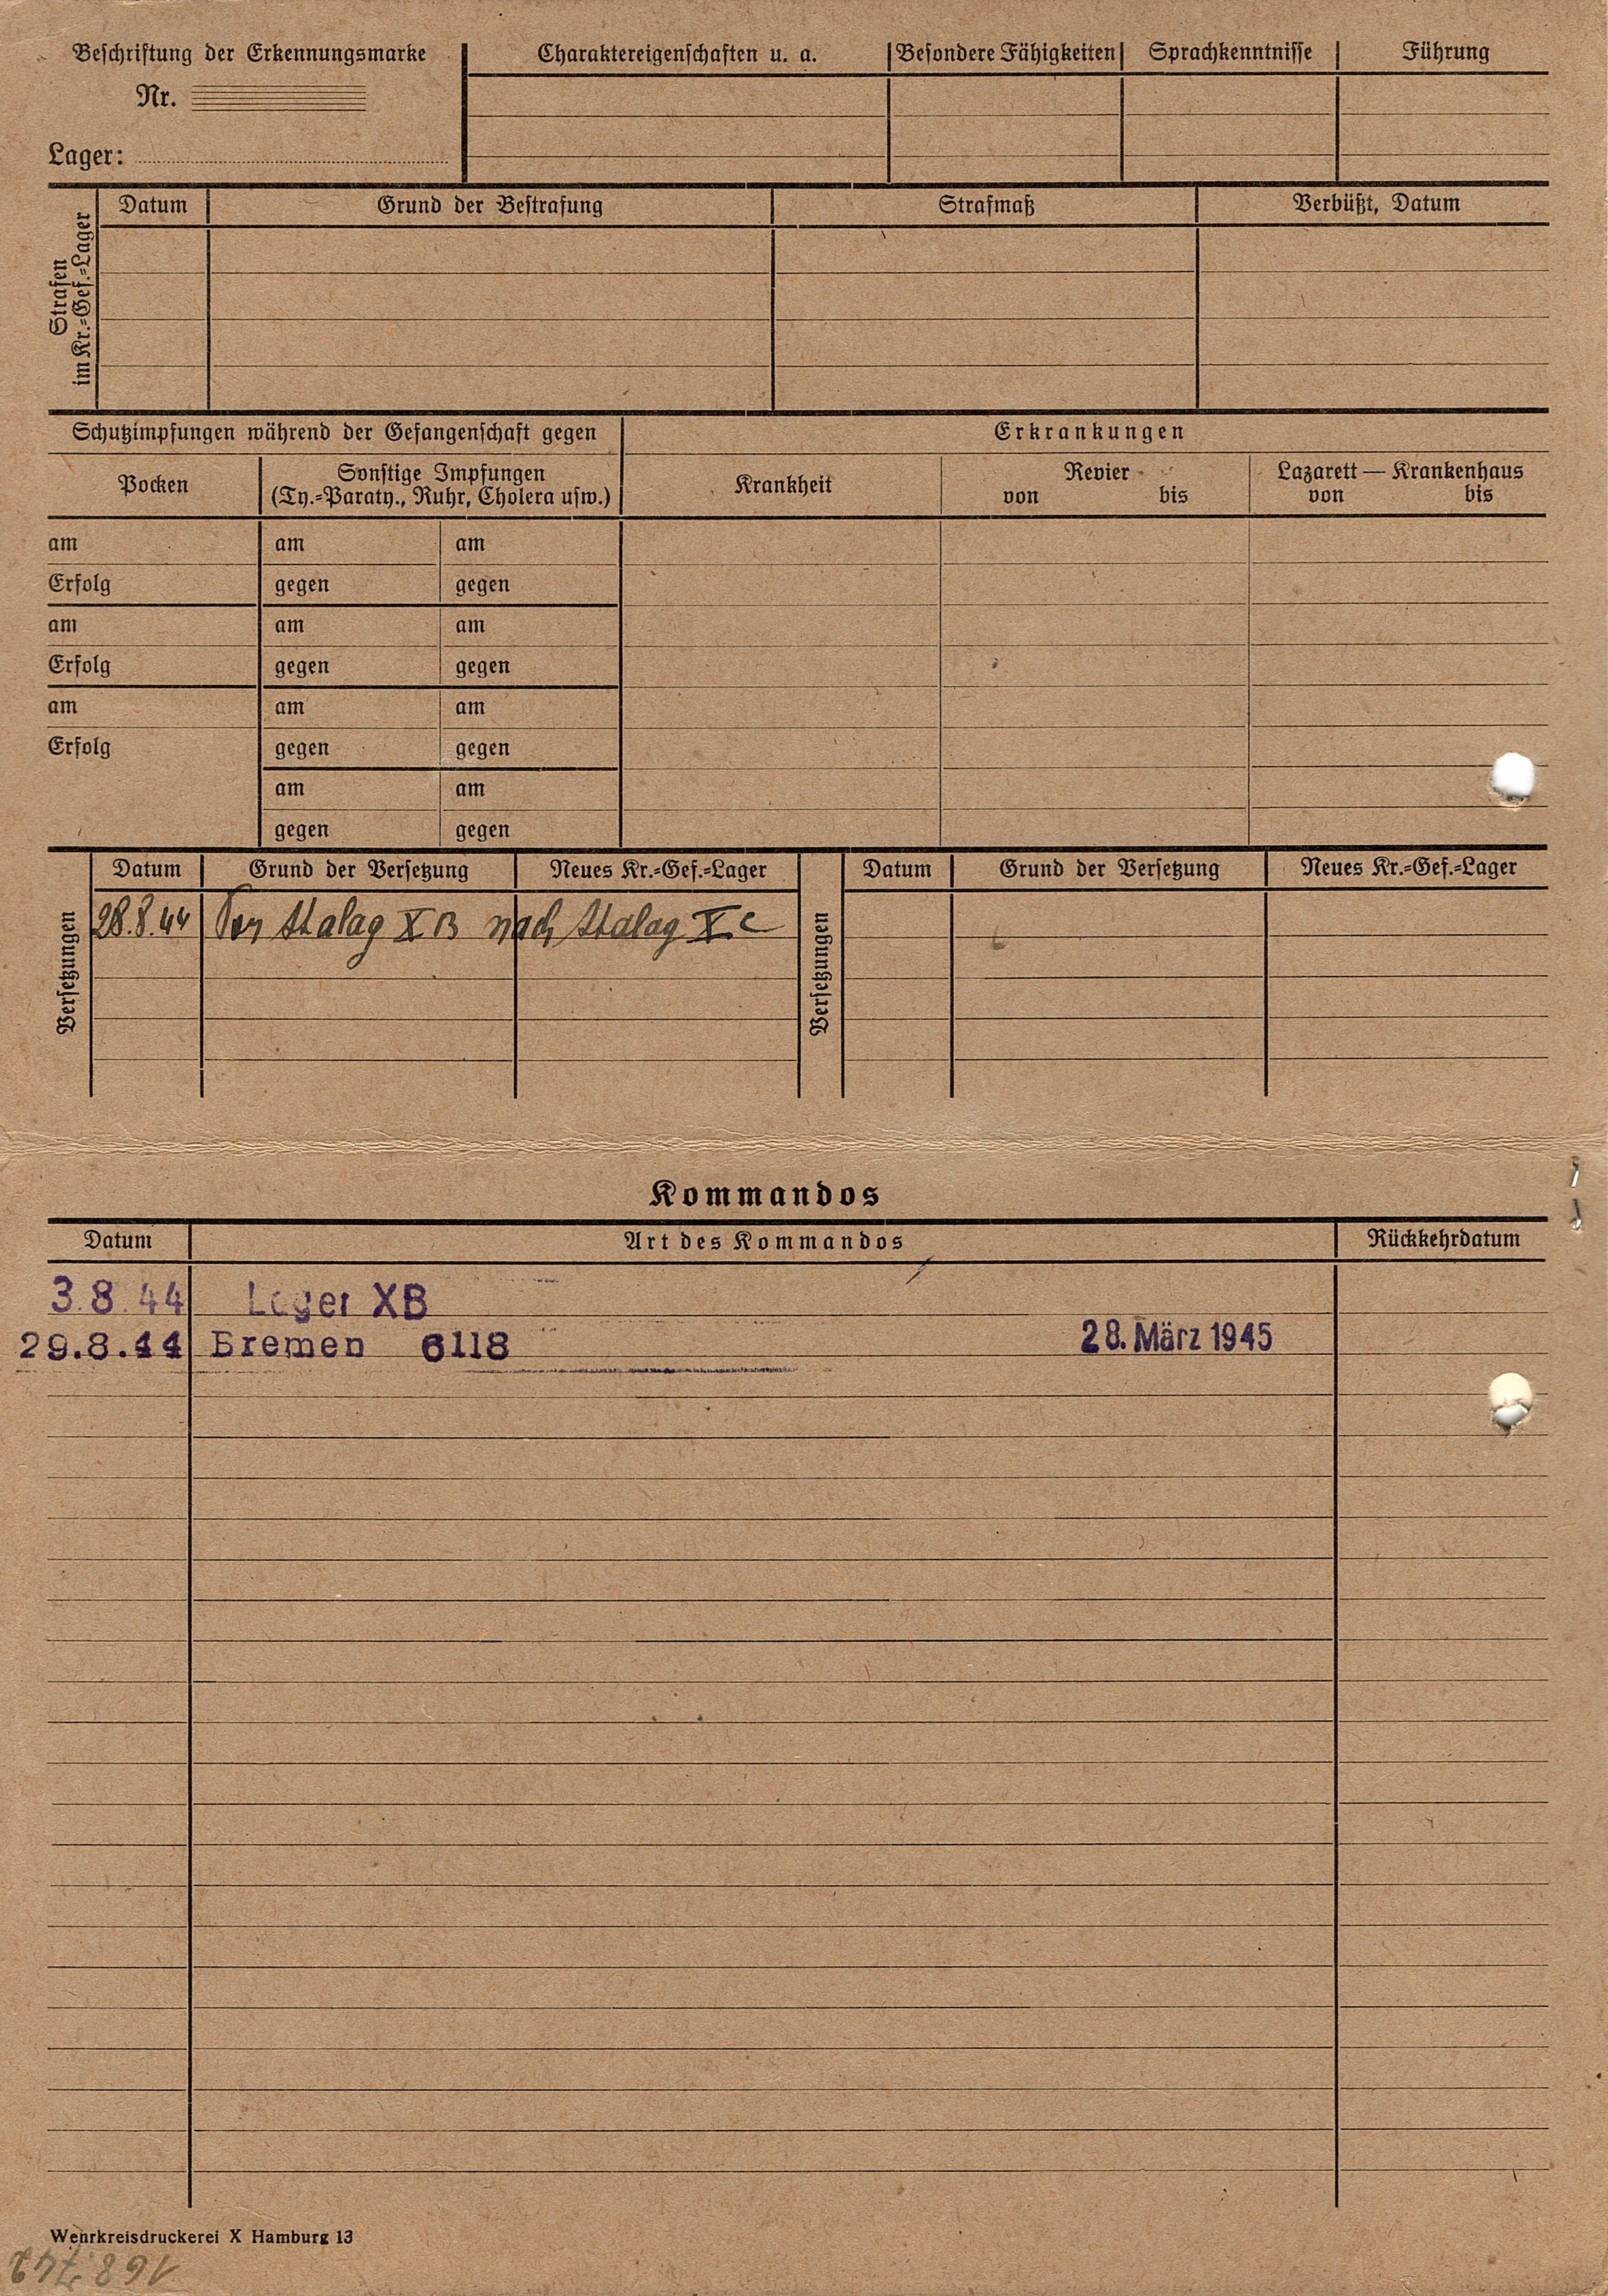 Beschriftung der Erkennungsmarke
Nr.
Lager:
Charaktereigenschaften u. a.
Besondere Fähigkeiten
Sprachkenntnisse
Führung
Strafen
im Kr.=Gef.=Lager
Datum
Grund der Bestrafung
Strafmaß
Verbüßt, Datum
Schutzimpfungen während der Gefangenschaft gegen
Erkrankungen
Pocken
Sonstige Impfungen
(Ty.=Paraty., Ruhr, Cholera usw.)
Krankheit
Revier
von bis
Lazarett — Krankenhaus
von bis
am am am
Erfolg gegen gegen
am am am
Erfolg gegen gegen
am am am
Erfolg gegen gegen
am am
gegen gegen
Versetzungen
Datum Grund der Versetzung Neues Kr.=Gef.=Lager
28.8.44 Von Stalag X B nach Stalag X C
Versetzungen
Datum Grund der Versetzung Neues Kr.=Gef.=Lager
Kommandos
Datum Art des Kommandos Rückkehrdatum
3.8.44 Lager XB
29.8.44 Bremen 6118 28. März 1945
Wehrkreisdruckerei X Hamburg 13